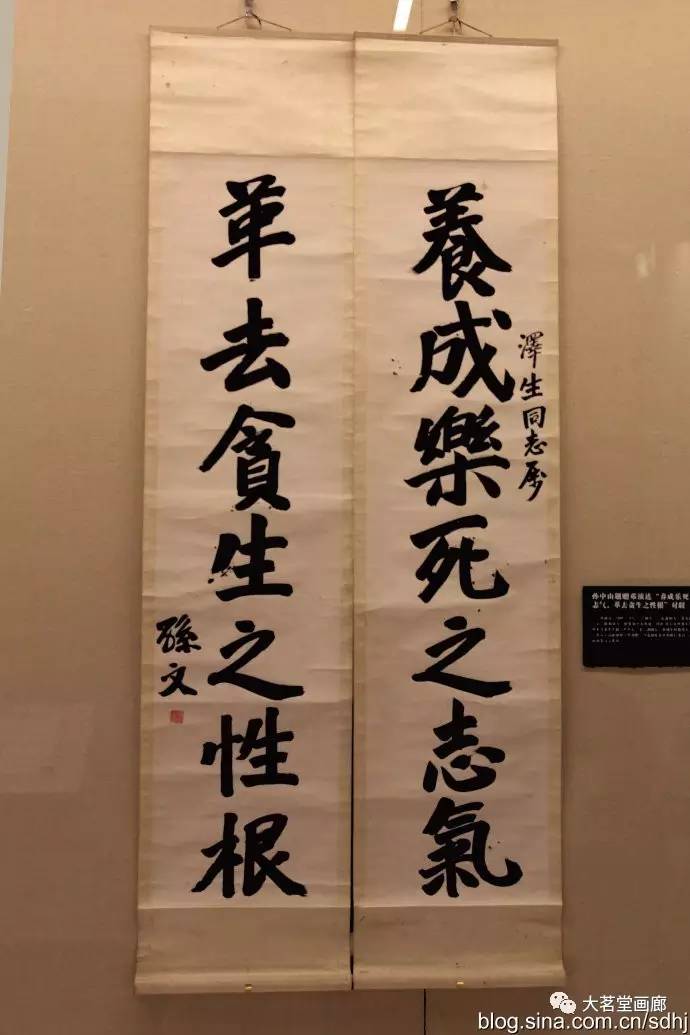 養成樂死之志氣
澤生同志属
革去貪生之性根
孫文
孙中山题赠邓演达“养成乐死之
志气，革去贪生之性根”对联
大茗堂画廊
blog.sina.com.cn/sdhj